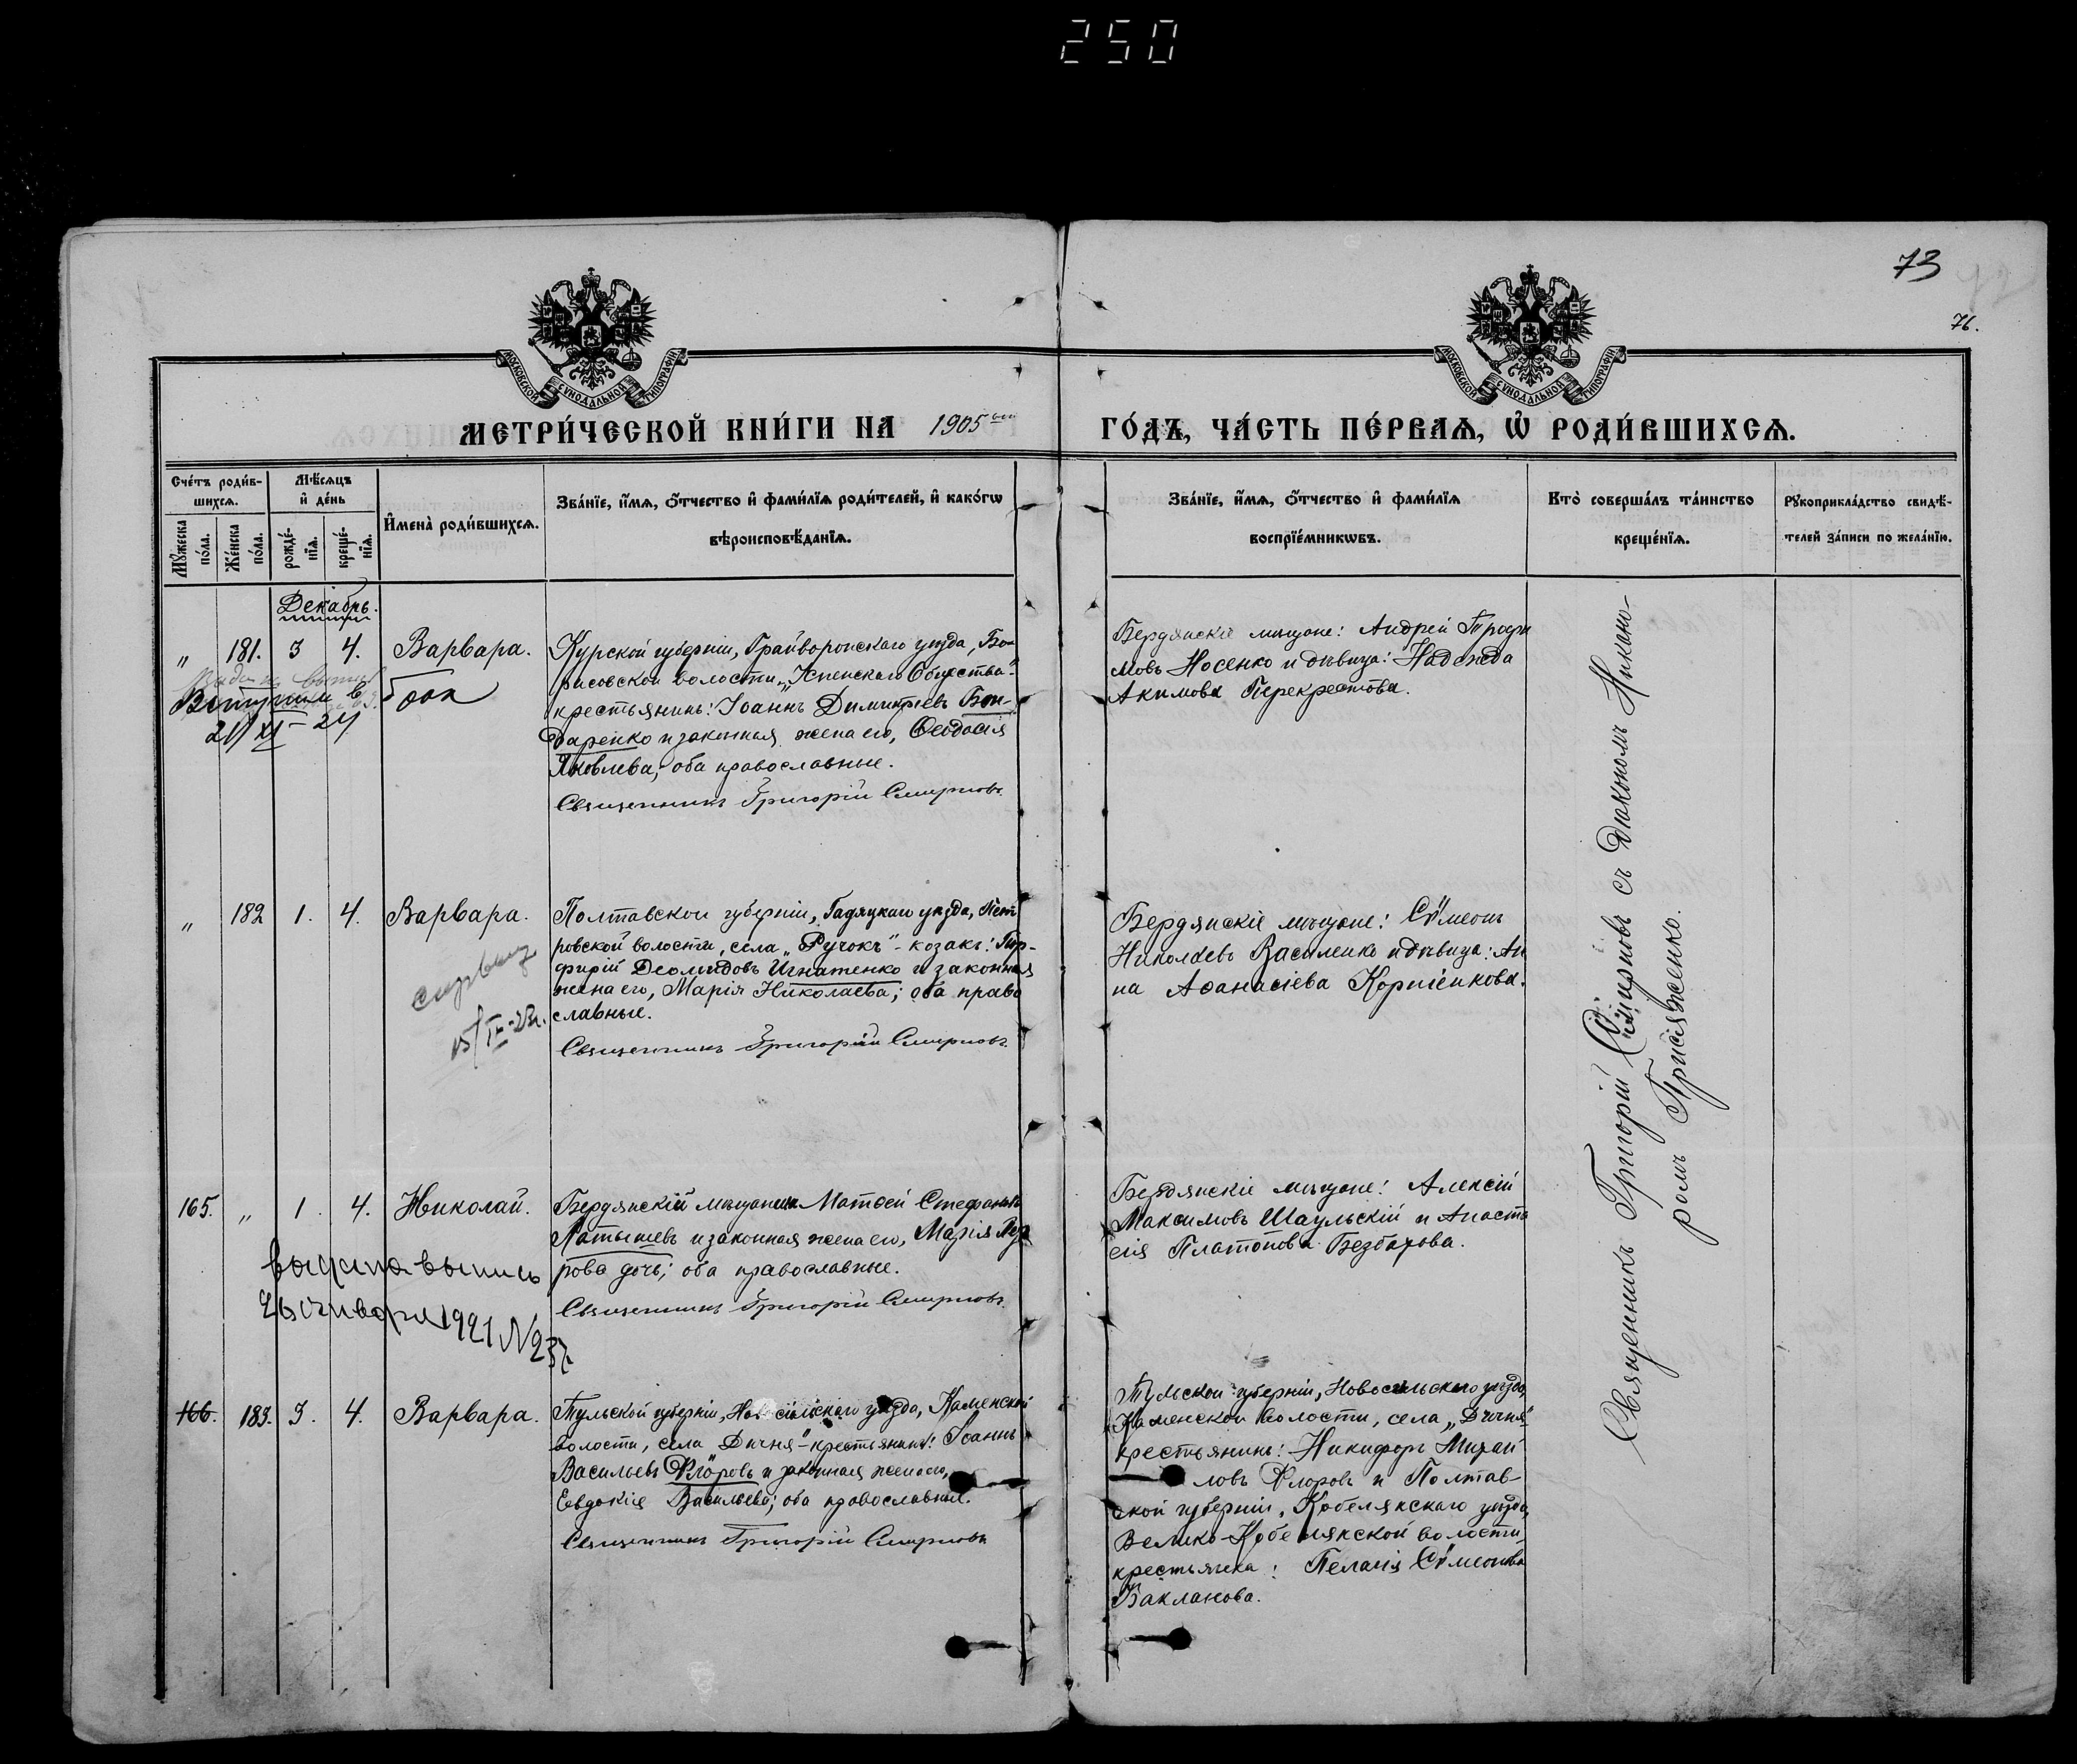 250
73
76.
МОСКОВСКОЙ СѴНОДАЛЬНОЙ ТИПОГРАФІИ
МОСКОВСКОЙ СѴНОДАЛЬНОЙ ТИПОГРАФІИ
МЕТРИ́ЧЕСКОЙ КНИ́ГИ НА 1905 ГО́ДЪ, ЧА́СТЬ ПЕ́РВАѦ, Ѡ҆ РОДИ́ВШИХСѦ.
Сче́тъ роди́в-
шихсѧ.
Мꙋ́жеска по́ла.
Же́нска по́ла.
Мѣ́сѧцъ и҆ де́нь
рожде́-нїѧ.
креще́-нїѧ.
И҆мена̀ роди́вшихсѧ.
Зва́нїе, и҆́мѧ, ѻ҆́тчество и҆ фами́лїѧ роди́телей, и҆ како́гѡ
вѣроисповѣ́данїѧ.
Зва́нїе, и҆́мѧ, ѻ҆́тчество и҆ фами́лїѧ
воспрїе́мникѡвъ.
Кто̀ соверша́лъ та́инство
креще́нїѧ.
Рꙋкоприкла́дство свидѣ́-
телей за́писи по жела́нїю.
Декабрь.
" 181. 3 4. Варвара.
Курской губерніи, Грайворонскаго уѣзда, Бо-
рисовской волости, „Успенскаго Общества"-
крестьянинъ: Іоаннъ Димитріевъ Бон-
даренко и законная жена его, Ѳеодосія
Яковлева; оба православные.
Священникъ Григорій Смирновъ.
Бердянскіе мѣщане: Андрей Трофи
мовъ Носенко и дѣвица: Надежда
Акимова Перекрестова.
Вступила в брак
21/XI-24
" 182 1. 4. Варвара.
Полтавской губерніи, Гадяцкаго уѣзда, Пет
ровской волости, села „Ручокъ"- козакъ: Пор-
фирій Деомидовъ Игнатенко и законная
жена его, Марія Николаева; оба право
славные.
Священникъ Григорій Смирновъ.
Бердянскіе мѣщане: Сѷмеонъ
Николаевъ Василенко и дѣвица: Ан
на Аѳанасіева Корніенкова.
15/IX-23г.
165. " 1. 4. Николай.
Бердянскій мѣщанинъ Матѳей Стефановъ
Латышевъ и законная жена его, Марія Пет
рова дочь; оба православные.
Священникъ Григорій Смирновъ.
Бердянскіе мѣщане: Алексій
Максимовъ Шаульскій и Анаста
сія Платонова Безбатова.
выдана выпись
26 января 1921 №
166. 183. 3. 4. Варвара.
Тульской губерніи, Новосильскаго уѣзда, Каменской
волости, села Дичня"-крестьянинъ: Іоаннъ
Васильевъ Флоровъ и законная жена его,
Евдокія Васильева; оба православные.
Священникъ Григорій Смирновъ
Тульской губерніи, Новосильскаго уѣзда,
Каменской волости, села „Дичня"
крестьянинъ: Никифоръ Михаи
ловъ Флоровъ и Полтав-
ской губерніи, Кобелякскаго уѣзда,
Велико-Кобелякской волости
крестьянка: Пелагія Сѷмеонова
Бакланова.
Священникъ Григорій Смирновъ съ діакономъ Никано-
ромъ Присяженко.